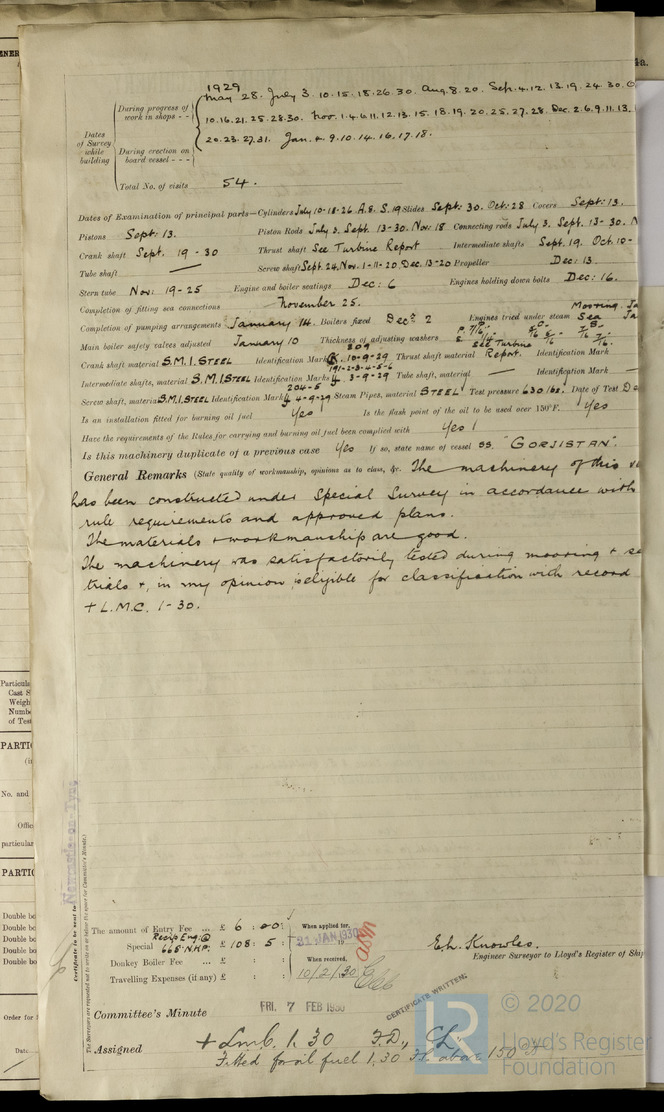 1929
May 28. July 3. 10. 15. 18. 26. 30. Aug. 8. 20. Sept. 4. 12. 13. 19. 24. 30.
During progress of work in shops - -
10. 16. 21. 25. 28. 30. Nov. 1. 4. 6. 11. 12. 13. 15. 18. 19. 20. 25. 27. 28. Dec. 2. 6. 9. 11. 13.
Dates of Survey while building
20. 23. 27. 31. Jan. 9. 10. 14. 16. 17. 18.
During erection on board vessel - - -
Total No. of visits 54.
Dates of Examination of principal parts—Cylinders July 10-18-26 A.8. S.19 Slides Sept: 30. Oct: 28 Covers Sept: 13.
Pistons Sept: 13. Piston Rods July 3. Sept. 13-30. Nov: 18 Connecting rods July 3. Sept. 13-30. N
Crank shaft Sept. 19-30 Thrust shaft See Turbine Report Intermediate shafts Sept. 19. Oct. 10-
Tube shaft — Screw shaft Sept. 24. Nov. 1-11-20. Dec. 13-20 Propeller Dec: 13.
Stern tube Nov: 19-25 Engine and boiler seatings Dec: 6 Engines holding down bolts Dec: 16.
Completion of fitting sea connections November 25.
Completion of pumping arrangements January 14. Boilers fixed Decr 2 Engines tried under steam Mooring Ja Sea Ja
Main boiler safety valves adjusted January 10 Thickness of adjusting washers
Crank shaft material S.M.I. STEEL Identification Mark 809 K. 10-9-29 Thrust shaft material See Turbine Report. Identification Mark
Intermediate shafts, material S.M.I STEEL Identification Marks 191-2-3-4-5-6 3-9-29 Tube shaft, material — Identification Mark —
Screw shaft, material S.M.I. STEEL Identification Mark 204-5 4-9-29 Steam Pipes, material STEEL Test pressure 630 lbs. Date of Test De
Is an installation fitted for burning oil fuel Yes Is the flash point of the oil to be used over 150°F. Yes
Have the requirements of the Rules for carrying and burning oil fuel been complied with Yes
Is this machinery duplicate of a previous case Yes If so, state name of vessel SS. "GORJISTAN".
General Remarks (State quality of workmanship, opinions as to class, &c. The machinery of this
has been constructed under Special Survey in accordance with
rule requirements and approved plans.
The materials + workmanship are good.
The machinery was satisfactorily tested during mooring + se
trials +, in my opinion is eligible for classification with record
+ L.M.C. 1-30.
Newcastle-on-Tyne
Certificate to be sent to
The amount of Entry Fee ... £ 6 : 00 : When applied for,
Recip Eng:
Special 668 N.H.P. £ 108 : 5 : 31 JAN 1930
Donkey Boiler Fee ... £ : : When received,
Travelling Expenses (if any) £ : : 10/2/30
E.L. Knowles.
Engineer Surveyor to Lloyd's Register of Ship
Committee's Minute FRI. 7 FEB 1930
CERTIFICATE WRITTEN
Assigned + LMC. 1.30 F.D., CL.
Fitted for oil fuel 1.30 Fl. above 150°F
LR
© 2020
Lloyd's Register
Foundation